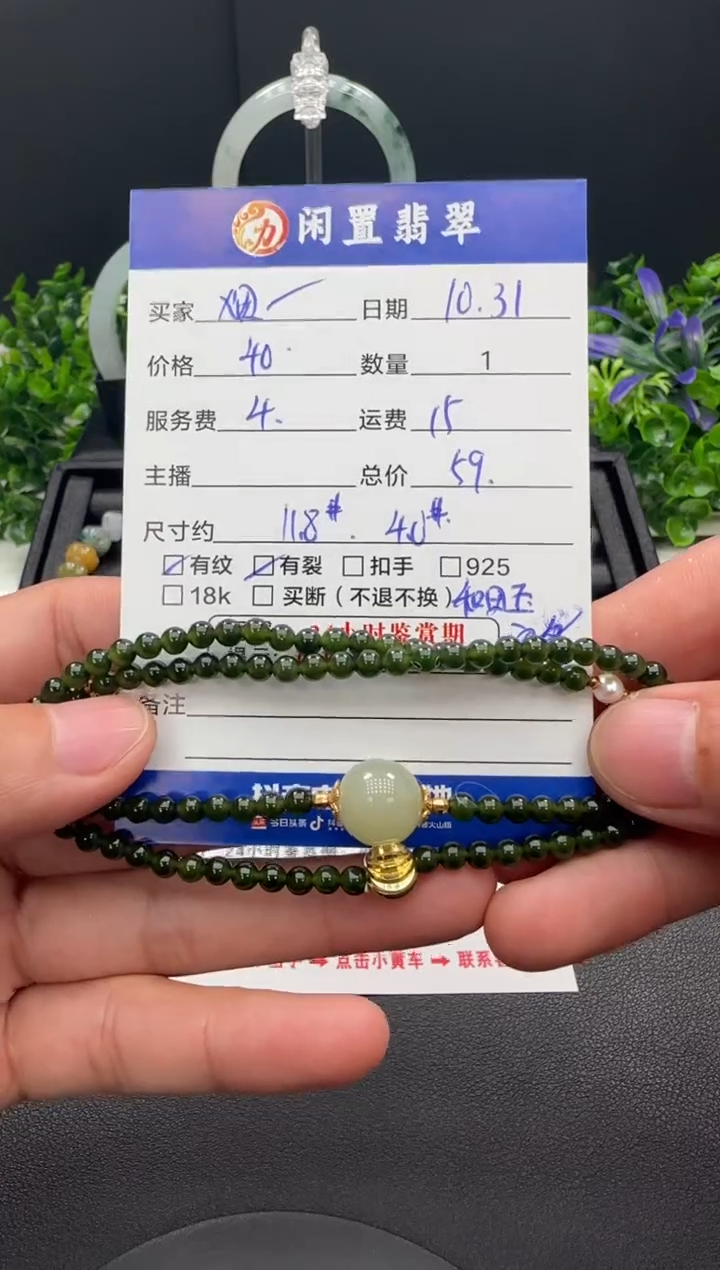 闲置翡翠
买家 烟一 日期 10.31
价格 40 数量 1
服务费 4. 运费 15
主播 总价 59.
尺寸约 11.8# . 4.0#.
☑有纹 ☑有裂 □扣手 □925
□18k □买断（不退不换）和田玉
24小时鉴赏期
备注
今日头条
点击小黄车 → 联系